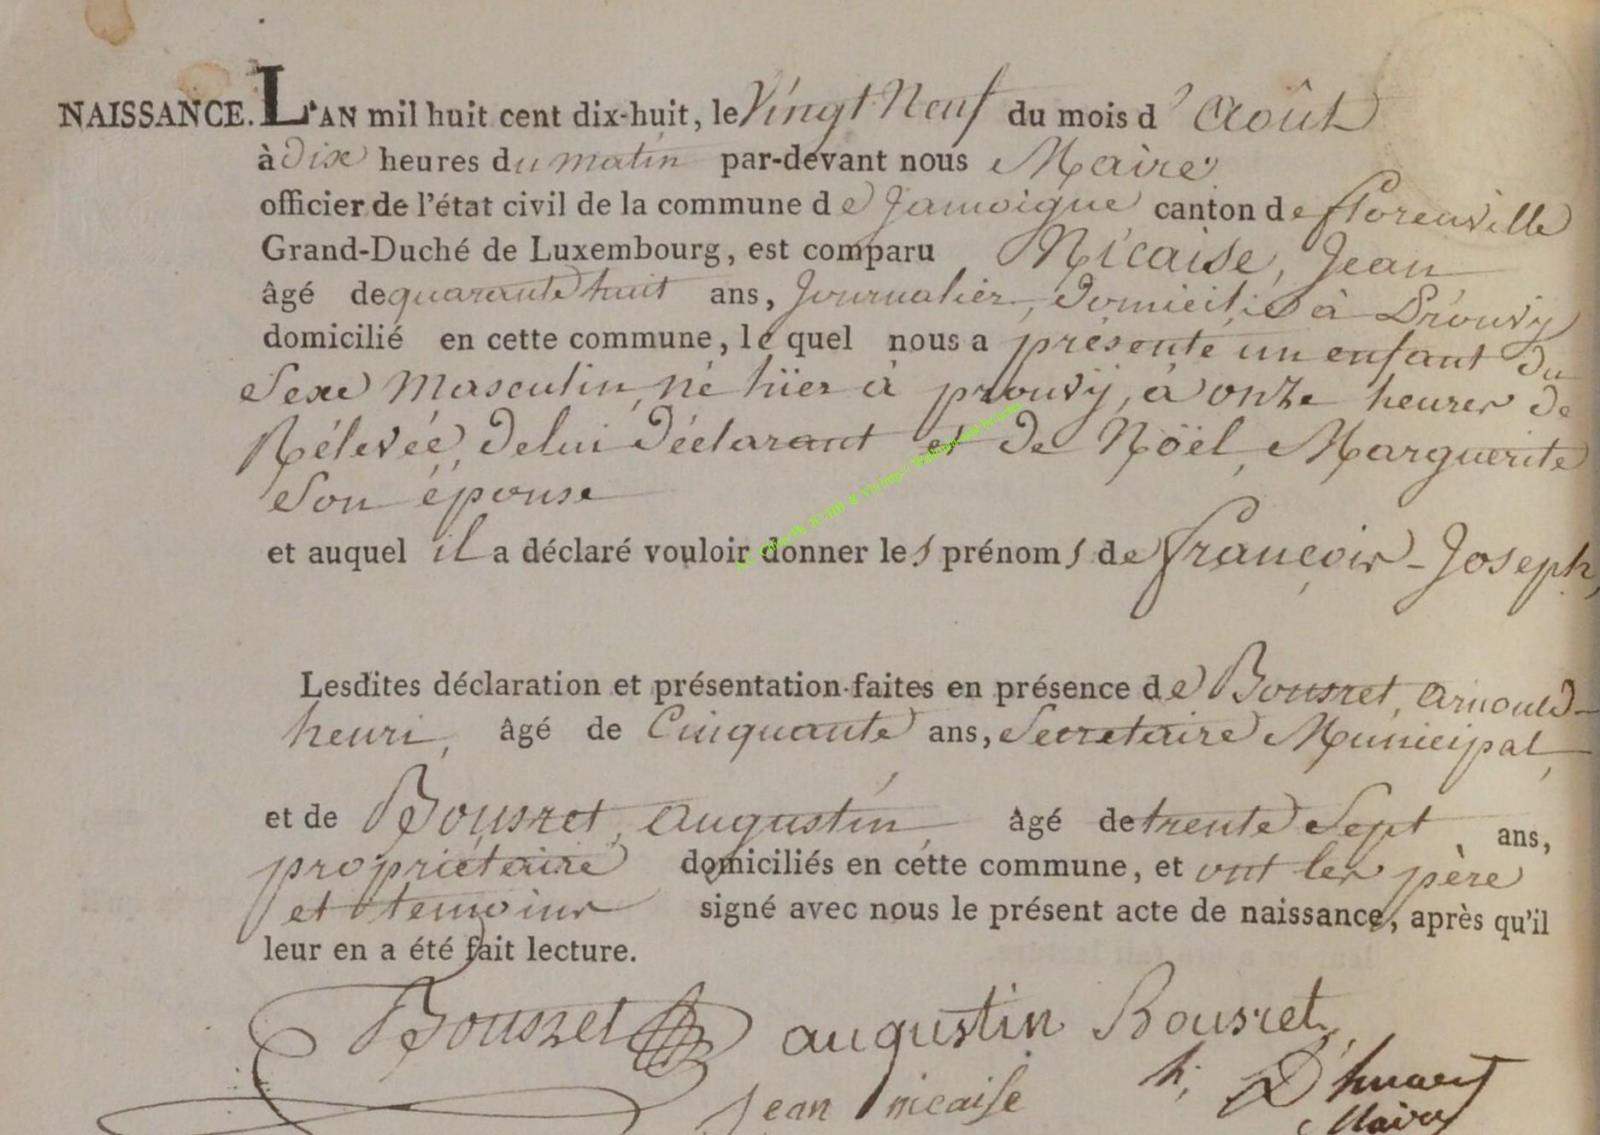 NAISSANCE. L'AN mil huit cent dix-huit, le Vingt Neuf du mois d'Août
à dix heures du matin par-devant nous Maire
officier de l'état civil de la commune de Jamoigne canton de florenville
Grand-Duché de Luxembourg, est comparu Nicaise, Jean
âgé de quarante huit ans, Journalier, domicilié à Prouvy
domicilié en cette commune, le quel nous a présenté un enfant du
Sexe Masculin, né hïer à prouvy, à onze heures de
Rélevée, de lui déclarant et de Nöël, Marguerite
Son épouse
et auquel il a déclaré vouloir donner les prénoms de françois-Joseph,
Lesdites déclaration et présentation faites en présence de Bousret, arnould-
henri, âgé de Cinquante ans, Secretaire Municipal,
et de Bousret, augustin, âgé de trente Sept ans,
propriétaire domiciliés en cette commune, et ont les père
et temoins signé avec nous le présent acte de naissance, après qu'il
leur en a été fait lecture.
Bousret augustin Bousret
jean nicaise h;
Maire